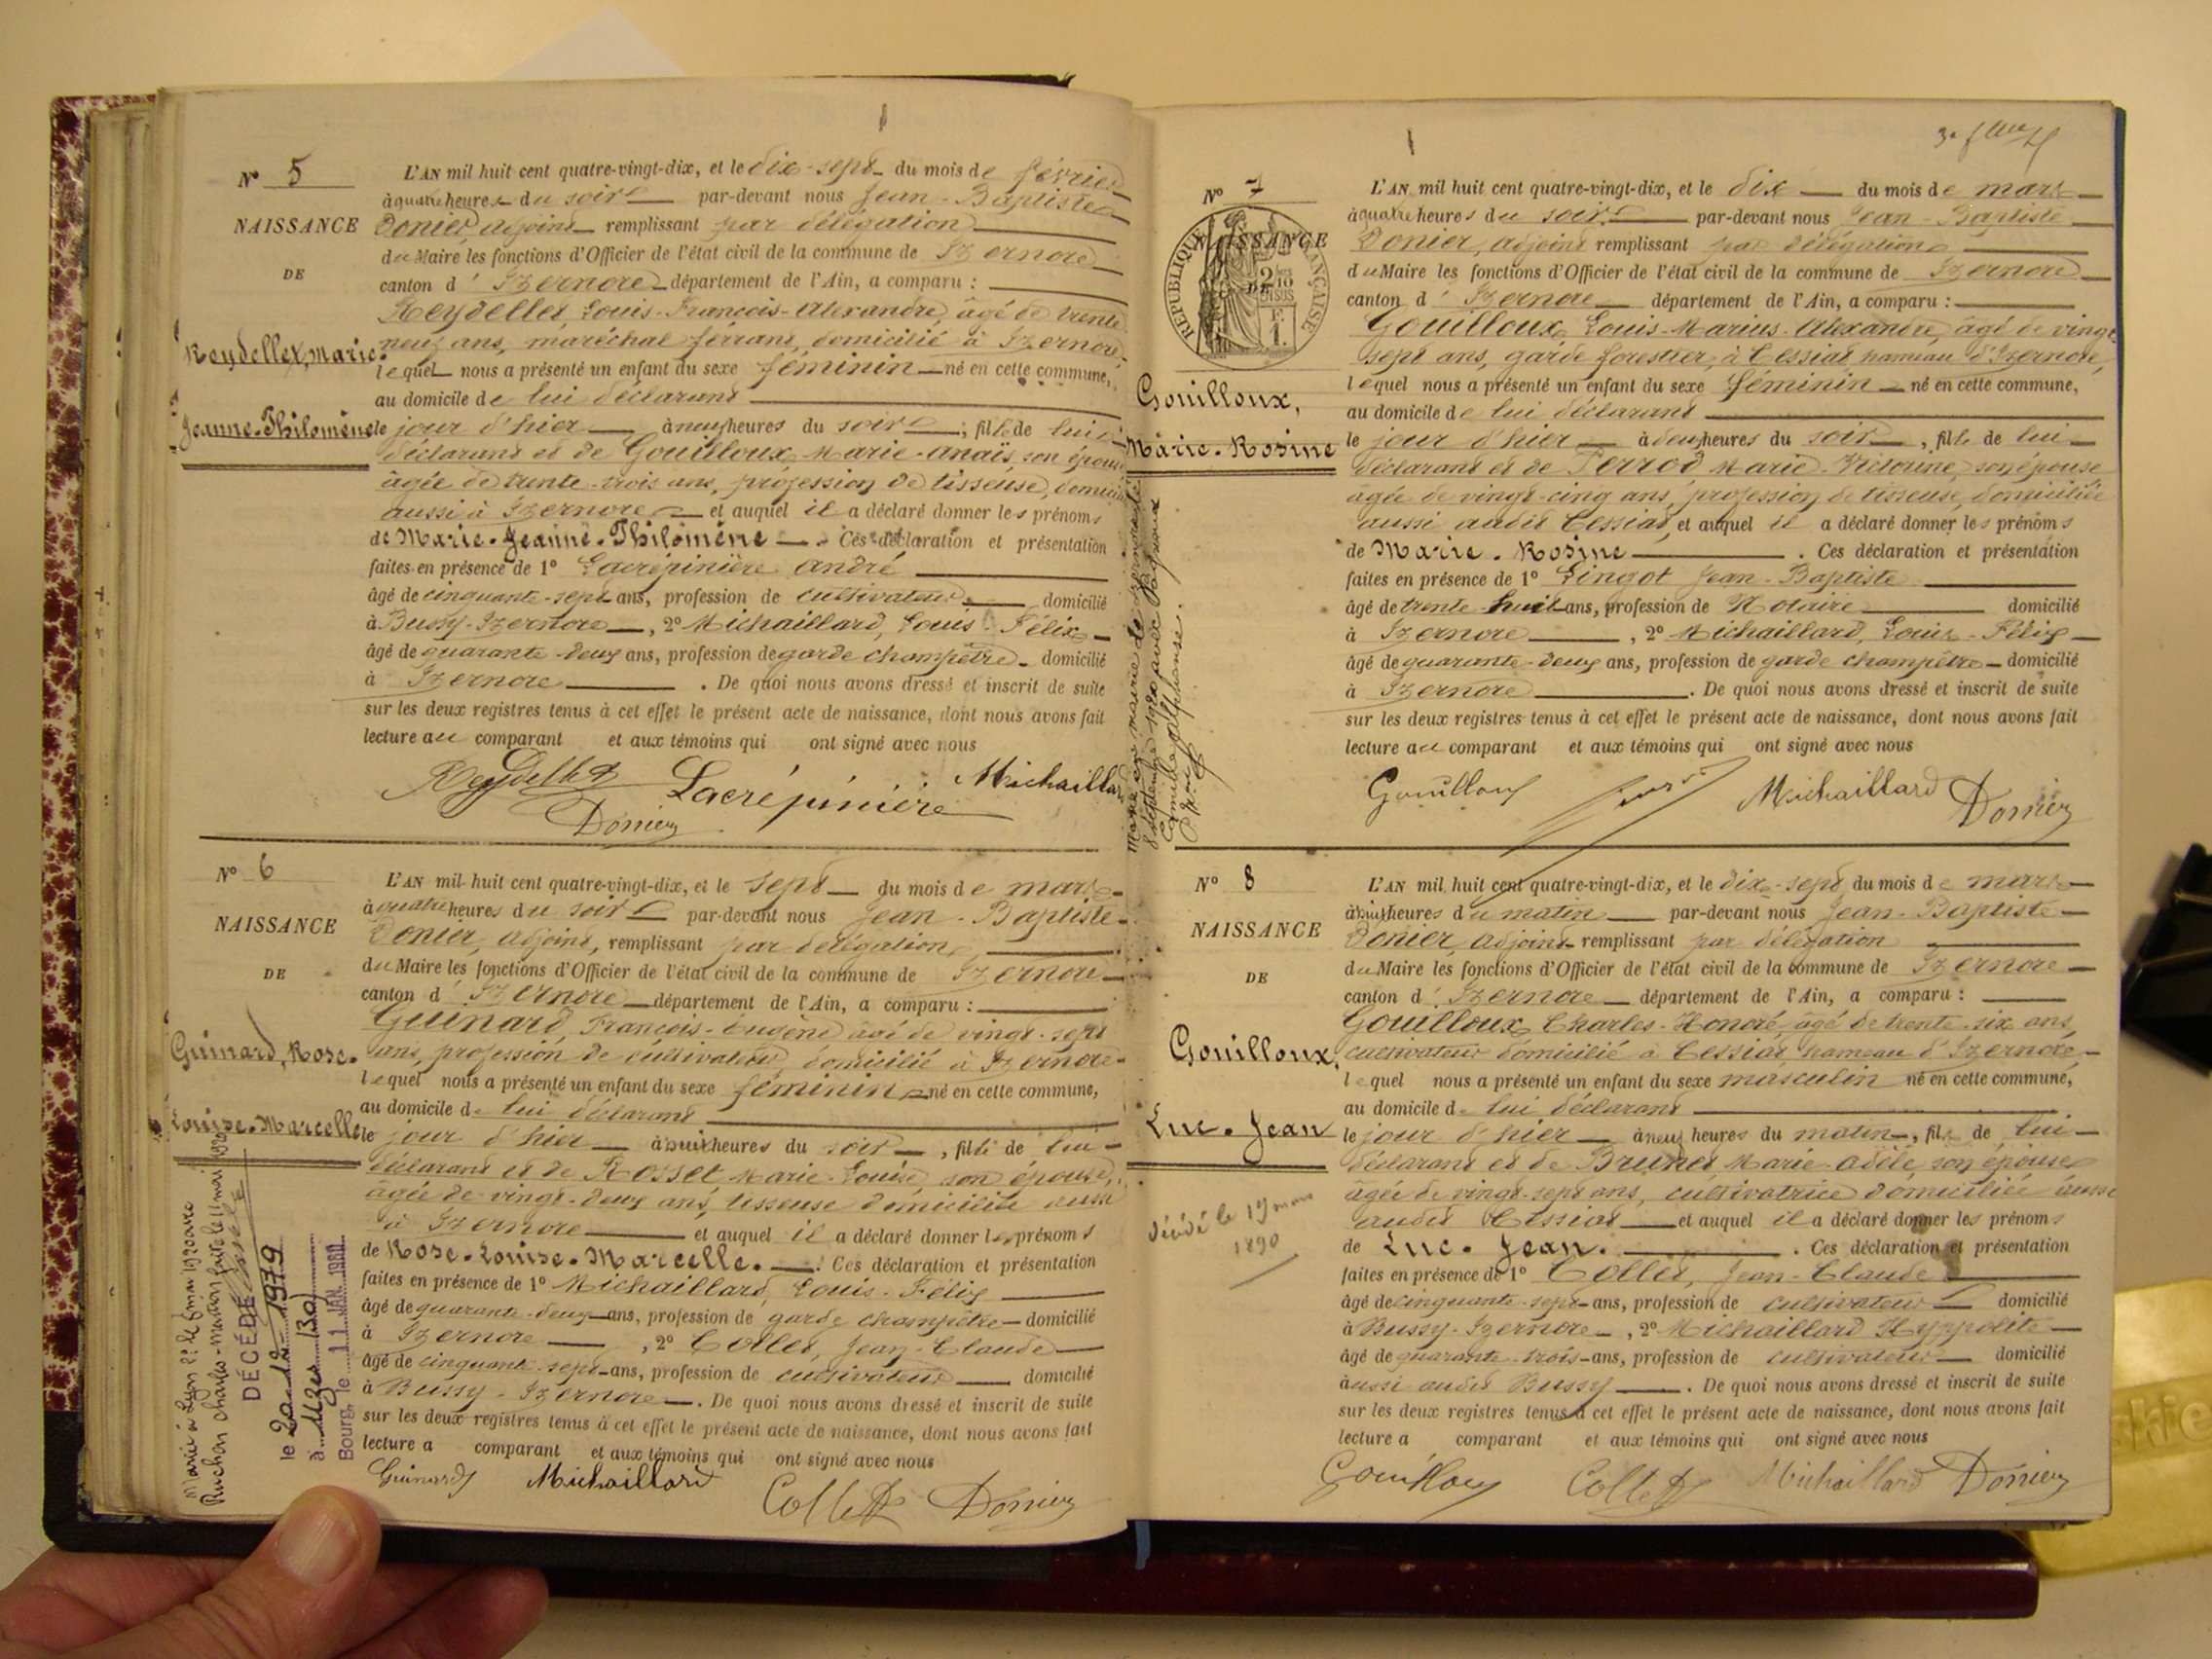 N° 5
NAISSANCE
DE
Reydellet, Marie-
Jeanne-Philomène
L'AN mil huit cent quatre-vingt-dix, et le dix-sept du mois de février
à quatre heures du soir par-devant nous Jean-Baptiste
Donier, adjoint remplissant par délégation
du Maire les fonctions d'Officier de l'état civil de la commune de Izernore
canton d'Izernore département de l'Ain, a comparu :
Reydellet, Louis-François-Alexandre, âgé de trente
neuf ans, maréchal ferrant, domicilié à Izernore
lequel nous a présenté un enfant du sexe féminin né en cette commune,
au domicile de lui déclarant
le jour d'hier à neuf heures du soir, fille de lui
déclarant et de Gouilloux, Marie-Anaïs, son épouse
âgée de trente-trois ans, profession de tisseuse, domiciliée
aussi à Izernore et auquel il a déclaré donner les prénoms
de Marie-Jeanne-Philomène. Ces déclaration et présentation
faites en présence de 1° Lacrépinière André
âgé de cinquante-sept ans, profession de cultivateur domicilié
à Bussy-Izernore, 2° Michaillard, Louis-Félix
âgé de quarante-deux ans, profession de garde champêtre domicilié
à Izernore. De quoi nous avons dressé et inscrit de suite
sur les deux registres tenus à cet effet le présent acte de naissance, dont nous avons fait
lecture au comparant et aux témoins qui ont signé avec nous
Reydellet Lacrépinière Michaillard
Donier
N° 6
NAISSANCE
DE
Guinard, Rose-
Louise-Marcelle
L'AN mil huit cent quatre-vingt-dix, et le sept du mois de mars
à quatre heures du soir par-devant nous Jean-Baptiste
Donier, adjoint, remplissant par délégation
du Maire les fonctions d'Officier de l'état civil de la commune de Izernore
canton d'Izernore département de l'Ain, a comparu :
Guinard, François-Eugène âgé de vingt-sept
ans, profession de cultivateur domicilié à Izernore
lequel nous a présenté un enfant du sexe féminin né en cette commune,
au domicile de lui déclarant
le jour d'hier à huit heures du soir, fille de lui
déclarant et de Rosset Marie-Louise son épouse,
âgée de vingt-deux ans, tisseuse domiciliée aussi
à Izernore et auquel il a déclaré donner les prénoms
de Rose-Louise-Marcelle. Ces déclaration et présentation
faites en présence de 1° Michaillard, Louis-Félix
âgé de quarante-deux ans, profession de garde champêtre domicilié
à Izernore, 2° Collet, Jean-Claude
âgé de cinquante-sept ans, profession de cultivateur domicilié
à Bussy-Izernore. De quoi nous avons dressé et inscrit de suite
sur les deux registres tenus à cet effet le présent acte de naissance, dont nous avons fait
lecture a comparant et aux témoins qui ont signé avec nous
Guinard Michaillard
Collet Donier
Marié à Lyon 2e le 8 mai 1920 avec
Ruchon Charles-
mai 1920
DÉCÉDÉE
le 20-12-1979
à
Bourg, le 11 JAN. 1980
3e
N° 7
NAISSANCE
DE
RÉPUBLIQUE FRANÇAISE
Gouilloux,
Marie-Rosine
Marié en mairie de
8 septembre 1920 avec
Camille Alphonse.
L'AN mil huit cent quatre-vingt-dix, et le dix du mois de mars
à quatre heures du soir par-devant nous Jean-Baptiste
Donier, adjoint remplissant par délégation
du Maire les fonctions d'Officier de l'état civil de la commune de Izernore
canton d'Izernore département de l'Ain, a comparu :
Gouilloux, Louis-Marius-Alexandre, âgé de vingt
sept ans, garde forestier, à Cessiat hameau d'Izernore,
lequel nous a présenté un enfant du sexe féminin né en cette commune,
au domicile de lui déclarant
le jour d'hier à deux heures du soir, fille de lui
déclarant et de Perrod Marie-Victorine, son épouse
âgée de vingt-cinq ans, profession de tisseuse, domiciliée
aussi audit Cessiat, et auquel il a déclaré donner les prénoms
de Marie-Rosine. Ces déclaration et présentation
faites en présence de 1° Lingot Jean-Baptiste
âgé de trente-huit ans, profession de Notaire domicilié
à Izernore, 2° Michaillard, Louis-Félix
âgé de quarante-deux ans, profession de garde champêtre domicilié
à Izernore. De quoi nous avons dressé et inscrit de suite
sur les deux registres tenus à cet effet le présent acte de naissance, dont nous avons fait
lecture au comparant et aux témoins qui ont signé avec nous
Gouilloux Michaillard Donier
N° 8
NAISSANCE
DE
Gouilloux,
Luc-Jean
décédé le 19 mars
1890
L'AN mil huit cent quatre-vingt-dix, et le dix-sept du mois de mars
à huit heures du matin par-devant nous Jean-Baptiste
Donier, adjoint remplissant par délégation
du Maire les fonctions d'Officier de l'état civil de la commune de Izernore
canton d'Izernore département de l'Ain, a comparu :
Gouilloux Charles-Honoré, âgé de trente-six ans,
cultivateur domicilié à Cessiat hameau d'Izernore
lequel nous a présenté un enfant du sexe masculin né en cette commune,
au domicile de lui déclarant
le jour d'hier à neuf heures du matin, fils de lui
déclarant et de Brunet Marie-Adèle, son épouse
âgée de vingt-sept ans, cultivatrice domiciliée aussi
audit Cessiat et auquel il a déclaré donner les prénoms
de Luc-Jean. Ces déclaration et présentation
faites en présence de 1° Collet, Jean-Claude
âgé de cinquante-sept ans, profession de cultivateur domicilié
à Bussy-Izernore, 2° Michaillard Hyppolite
âgé de quarante-trois ans, profession de cultivateur domicilié
aussi audit Bussy. De quoi nous avons dressé et inscrit de suite
sur les deux registres tenus à cet effet le présent acte de naissance, dont nous avons fait
lecture a comparant et aux témoins qui ont signé avec nous
Gouilloux Collet Michaillard Donier